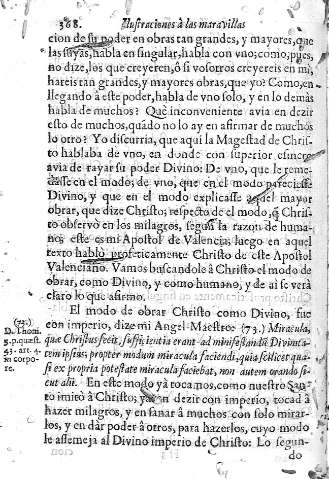 368. Ilustraciones à las maravillas
cion de su poder en obras tan grandes, y mayores, que
las suyas, habla en singular, habla con vno; como, pues,
no dize, los que creyeren, ô si vosotros creyereis en mi,
hareis tan grandes, y mayores obras, que yo? Como, en
llegando à este poder, habla de vno solo, y en lo demàs
habla de muchos? Què inconveniente avia en dezir
esto de muchos, quãdo no lo ay en afirmar de muchos
lo otro? Yo discurria, que aqui la Magestad de Chris-
to hablaba de vno, en donde con superior esmero
avia de rayar su poder Divino: De vno, que le reme-
dasse en el modo; de vno, que en el modo pareciesse
Divino, y que en el modo explicasse aquel mayor
obrar, que dize Christo; respecto de el modo, q̃ Chris-
to observò en los milagros, segun la razon de huma-
no; este es mi Apostol de Valencia; luego en aquel
texto hablò profeticamente Christo de este Apostol
Valenciano. Vamos buscandole à Christo el modo de
obrar, como Divino, y como humano, y de ai se verà
claro lo que afirmo.
El modo de obrar Christo como Divino, fue
(73.) con imperio, dize mi Angel Maestro: (73.) Miracula,
D. Thom. que Christus fecit, sufficientia erant ad manifestandã Divinita-
3. p. quæst. tem ipsius; propter modum miracula faciendi, quia scilicet qua-
43. art. 4. si ex propria potestate miracula faciebat, non autem orando si-
in corpo- cut alii. En este modo ya tocamos, como nuestro San-
re. to imitò à Christo; ya en dezir con imperio, tocad à
hazer milagros, y en sanar à muchos con solo mirar-
los, y en dàr poder à otros, para hazerlos, cuyo modo
le assemeja al Divino imperio de Christo: Lo segun-
do